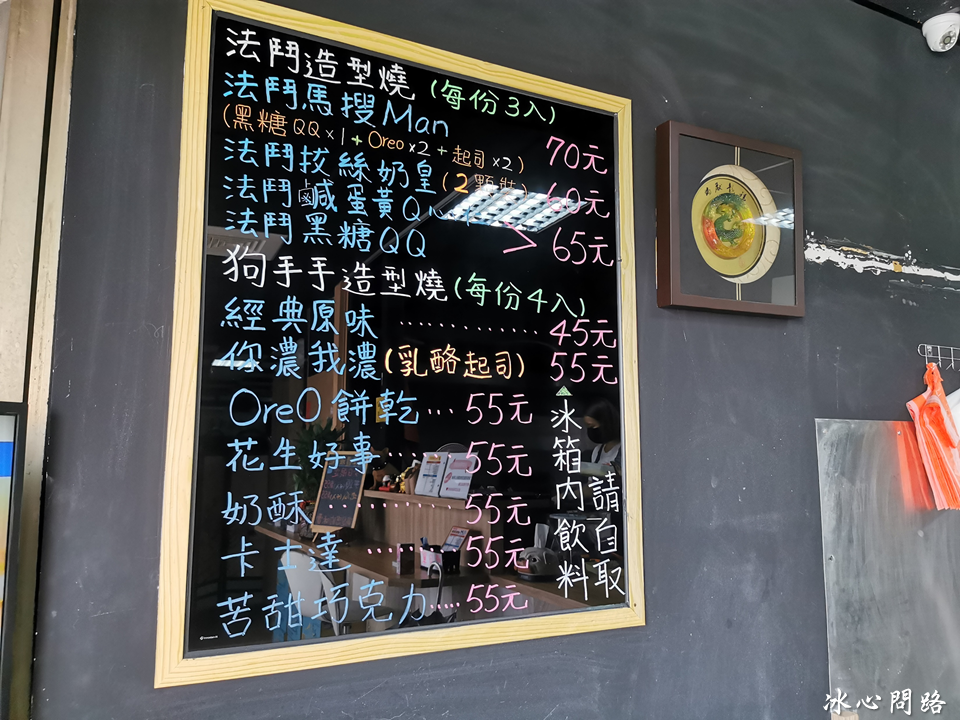 法鬥造型燒(每份3入)
法鬥馬搜Man
(黑糖QQx1+Oreox2+起司x2) 70元
法鬥拔絲奶皇(2顆裝) 60元
法鬥鹹蛋黃Q心
法鬥黑糖QQ > 65元
狗手手造型燒(每份4入)
經典原味 ............. 45元
你濃我濃(乳酪起司) 55元
OreO餅乾...55元
花生好事......55元
奶酥..........55元
卡士達......55元
苦甜巧克力.....55元
冰箱內飲料
請自取
冰心問路